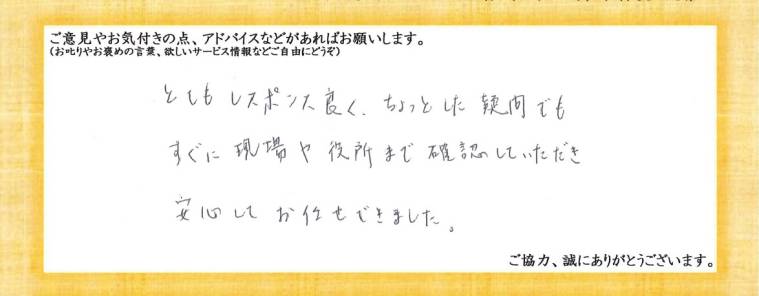 ご意見やお気付きの点、アドバイスなどがあればお願いします。
(お叱りやお褒めの言葉、欲しいサービス情報などご自由にどうぞ)
とてもレスポンス良く、ちょっとした疑問でも
すぐに現場や役所まで確認していただき
安心してお任せできました。
ご協力、誠にありがとうございます。